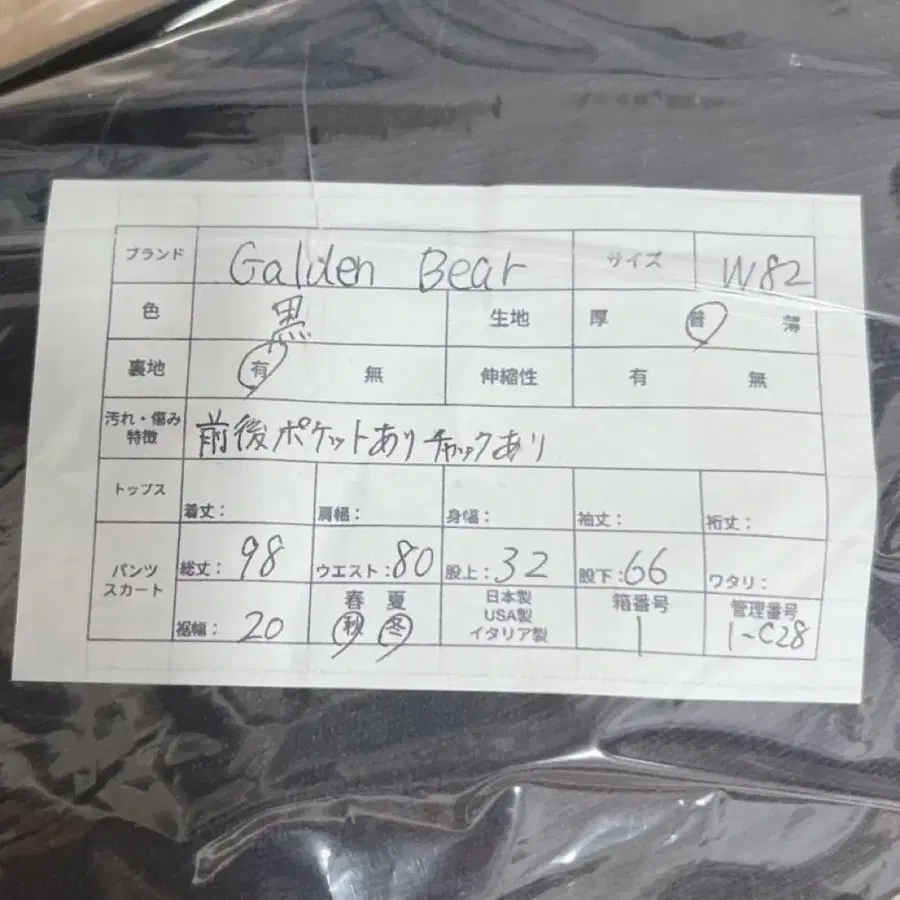 ブランド Galden Bear サイズ W82
色 黒 生地 厚 普 薄
裏地 有 無 伸縮性 有 無
汚れ・傷み
特徴 前後ポケットあり チャックあり
トップス 着丈: 肩幅: 身幅: 袖丈: 裄丈:
パンツ
スカート 総丈: 98 ウエスト: 80 股上: 32 股下: 66 ワタリ:
裾幅: 20 春 夏
秋 冬
日本製
USA製
イタリア製
箱番号
1
管理番号
1-C28